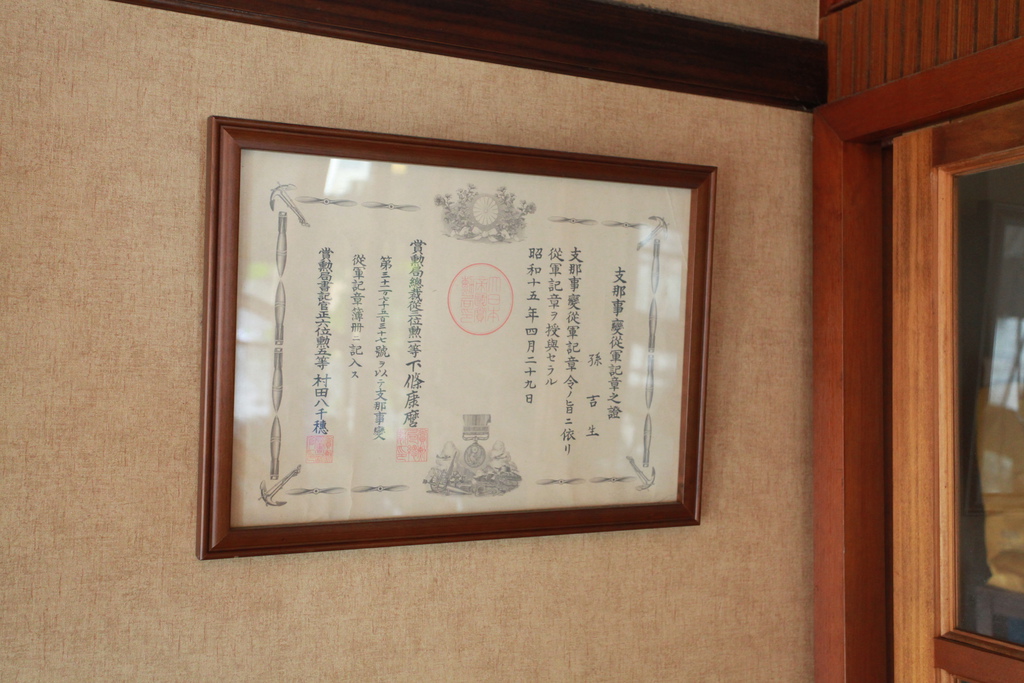 支那事變從軍記章之證
孫吉生
支那事變從軍記章令ノ旨ニ依リ
從軍記章ヲ授與セラル
昭和十五年四月二十九日
賞勲局總裁從三位勲一等下條康麿
第三十二万千五百三十七號ヲ以テ支那事變
從軍記章簿冊ニ記入ス
賞勲局書記官正六位勲五等村田八千穗